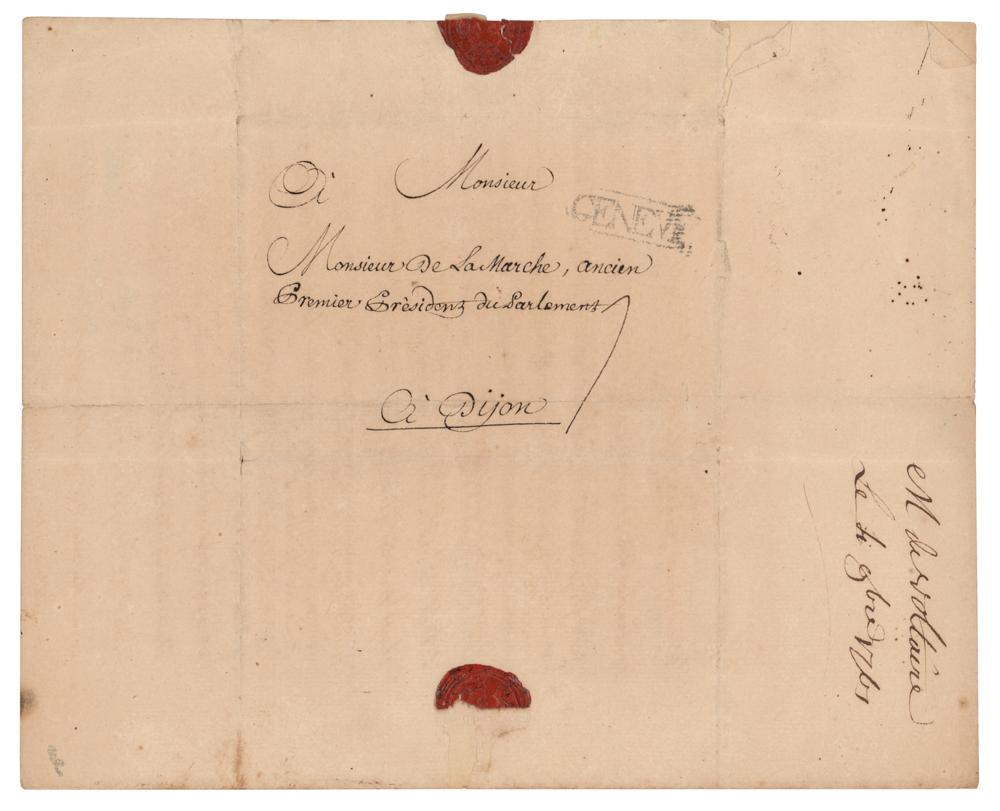 À Monsieur
GENEV
Monsieur De La Marche, ancien
Premier Président du Parlement
À Dijon
M de Voltaire
Le 9bre 1761